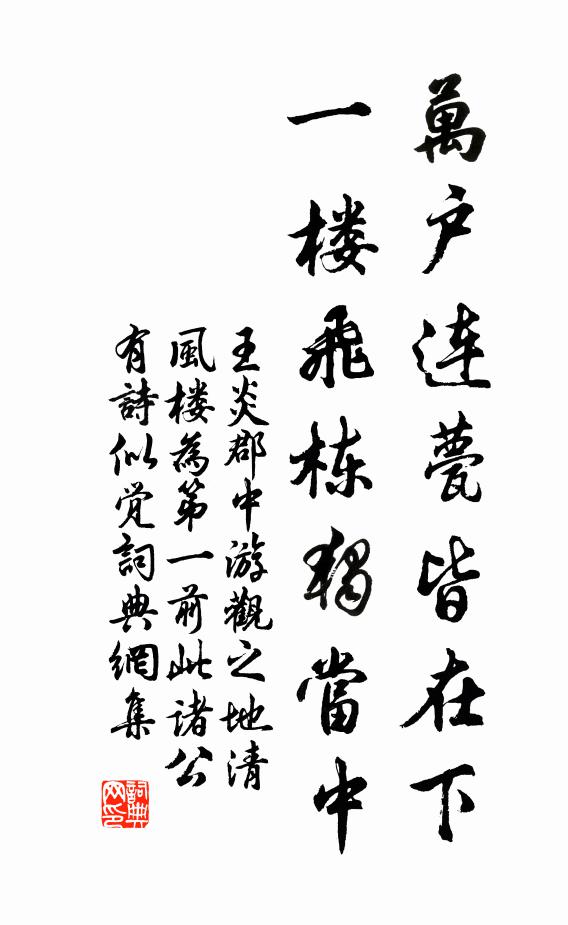 萬户连甍皆在下
一楼飛栋獨當中
王炎郡中游觀之地清
風楼為第一前此諸公
有詩似觉詞典網集
詞典
网印